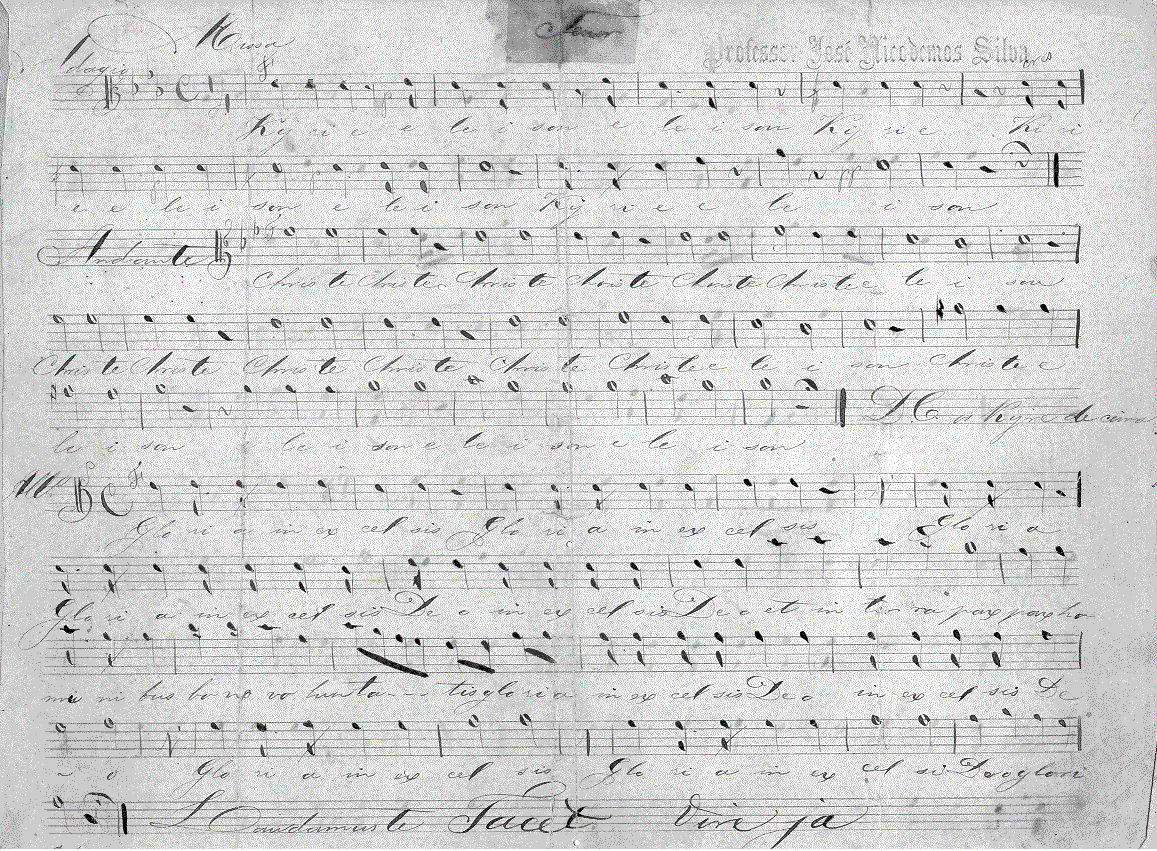 Missa Tenor Professor José Nicodemos Silva
Adagio
Ky ri e e le i son e le i son Ky ri e Ki ri
e e le i son e le i son Ky ri e e le i son
Andante
Chris te Chris te Chris te Chris te Chris te Chris te e le i son
Chris te Chris te Chris te Chris te Chris te Chris te e le i son Chris te e
le i son e le i son e le i son e le i son D.C. a Kyrie de cima
Glo ri a in ex cel sis Glo ri a in ex cel sis Glo ri a
Glo ri a in ex cel sis De o in ex cel sis De o et in ter ra pax pax ho
mi ni bus bo ne vo lunta - - tis glo ri a in ex cel sis De o in ex cel sis De
o Glo ri a in ex cel sis Glo ri a in ex cel si Deo glori
Laudamus te Tacet Vire já